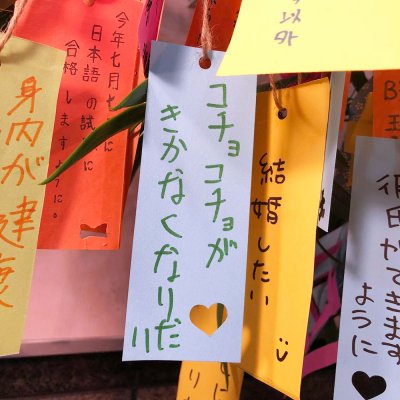 以外
彼氏ができます
ように
結婚したい
コチョコチョが
きかなくなりだ
い
今年七月七日に
日本語の試験に
合格しますように。
身内が健康